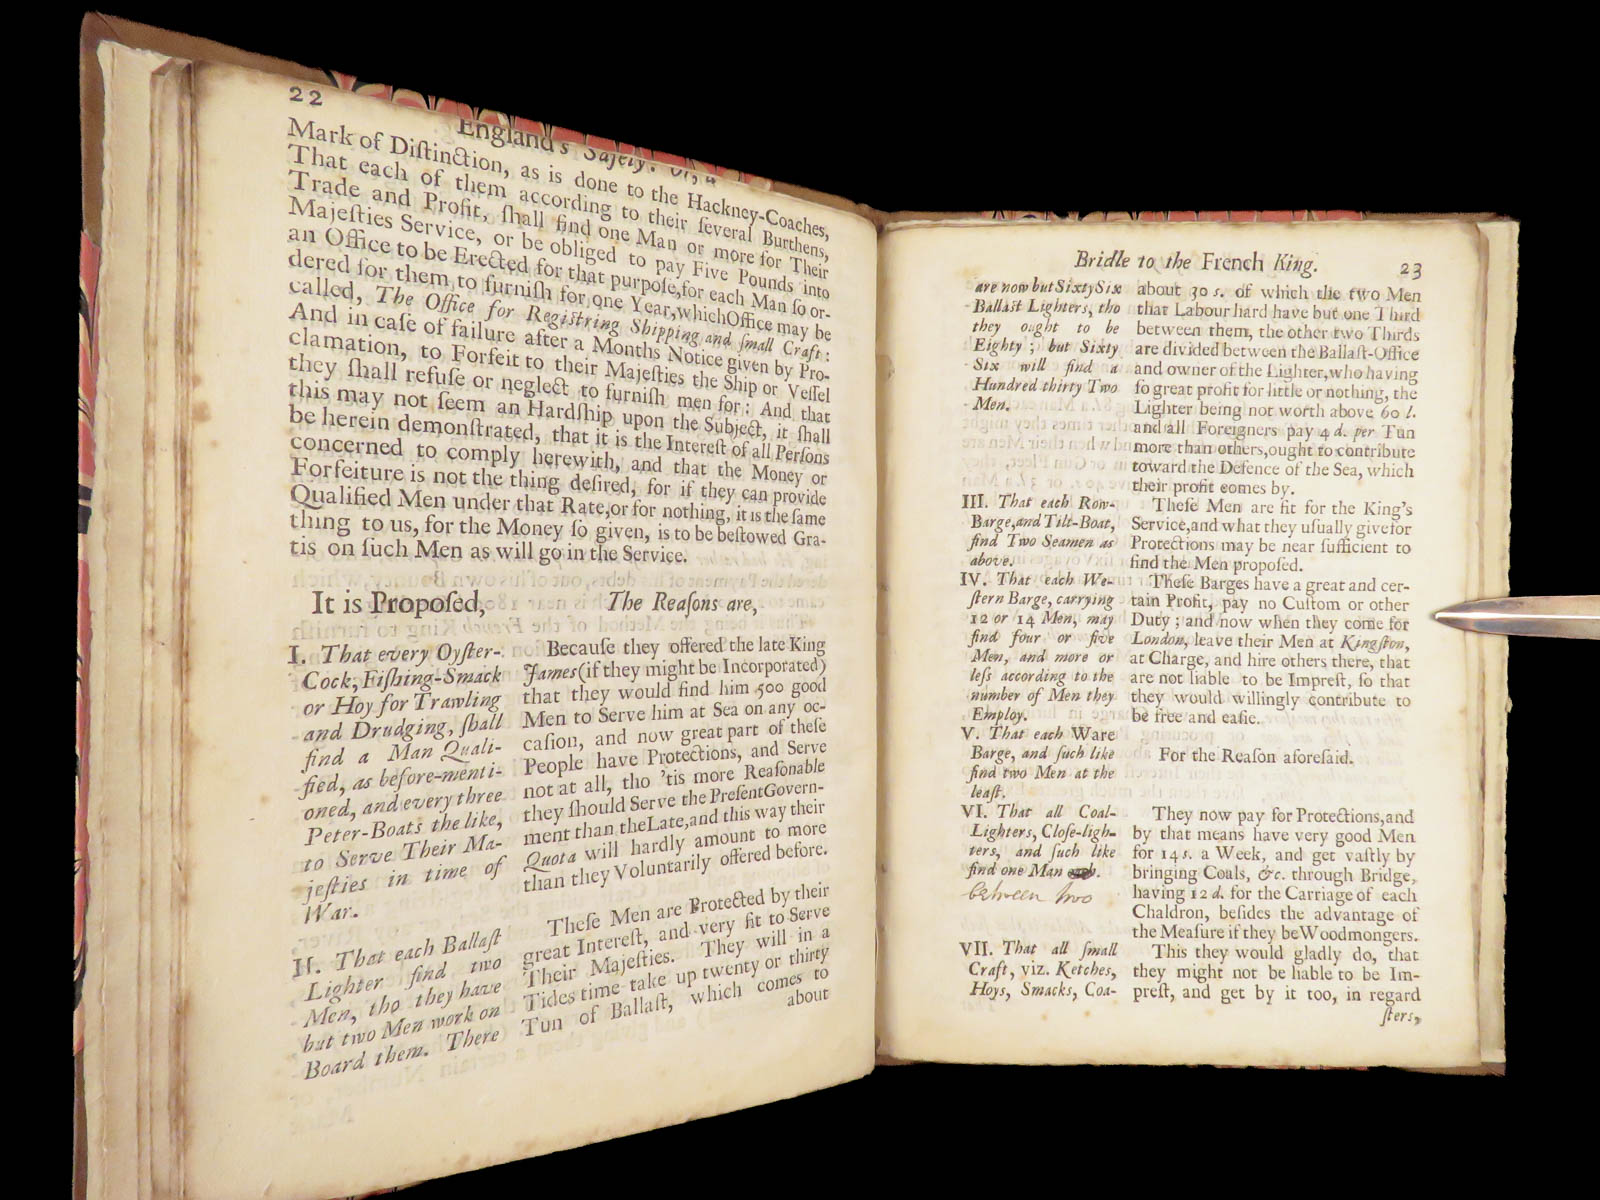 22
England's Safety: Or, a
Mark of Diſtinction, as is done to the Hackney-Coaches,
That each of them according to their ſeveral Burthens,
Trade and Profit, ſhall find one Man or more for Their
Majeſties Service, or be obliged to pay Five Pounds into
an Office to be Erected for that purpoſe, for each Man ſo or-
dered for them to furniſh for one Year, which Office may be
called, The Office for Regiſtring Shipping and ſmall Craft:
And in caſe of failure after a Months Notice given by Pro-
clamation, to Forfeit to their Majeſties the Ship or Veſſel
they ſhall refuſe or neglect to furniſh men for: And that
this may not ſeem an Hardſhip upon the Subject, it ſhall
be herein demonſtrated, that it is the Intereſt of all Perſons
concerned to comply herewith, and that the Money or
Forfeiture is not the thing deſired, for if they can provide
Qualified Men under that Rate, or for nothing, it is the ſame
thing to us, for the Money ſo given, is to be beſtowed Gra-
tis on ſuch Men as will go in the Service.
It is Propoſed,
I. That every Oyſter-
Cock, Fiſhing-Smack
or Hoy for Trawling
and Drudging, ſhall
find a Man Quali-
fied, as before-menti-
oned, and every three
Peter-Boats the like,
to Serve Their Ma-
jeſties in time of
War.
II. That each Ballaſt
Lighter find two
Men, tho they have
but two Men work on
Board them. There
The Reaſons are,
Becauſe they offered the late King
James (if they might be Incorporated)
that they would find him 500 good
Men to Serve him at Sea on any oc-
caſion, and now great part of theſe
People have Protections, and Serve
not at all, tho 'tis more Reaſonable
they ſhould Serve the Preſent Govern-
ment than the Late, and this way their
Quota will hardly amount to more
than they Voluntarily offered before.
Theſe Men are Protected by their
great Intereſt, and very fit to Serve
Their Majeſties. They will in a
Tides time take up twenty or thirty
Tun of Ballaſt, which comes to
about
Bridle to the French King.
23
are now but Sixty Six
Ballaſt Lighters, tho
they ought to be
Eighty; but Sixty
Six will find a
Hundred thirty Two
Men.
III. That each Row-
Barge, and Tilt-Boat,
find Two Seamen as
above.
IV. That each We-
ſtern Barge, carrying
12 or 14 Men, may
find four or five
Men, and more or
leſs according to the
number of Men they
Employ.
V. That each Ware
Barge, and ſuch like
find two Men at the
leaſt.
VI. That all Coal-
Lighters, Cloſe-ligh-
ters, and ſuch like
find one Man each.
between two
VII. That all ſmall
Craft, viz. Ketches,
Hoys, Smacks, Coa-
about 30 s. of which the two Men
that Labour hard have but one Third
between them, the other two Thirds
are divided between the Ballaſt-Office
and owner of the Lighter, who having
ſo great profit for little or nothing, the
Lighter being not worth above 60 l.
and all Foreigners pay 4 d. per Tun
more than others, ought to contribute
toward the Defence of the Sea, which
their profit comes by.
Theſe Men are fit for the King's
Service, and what they uſually give for
Protections may be near ſufficient to
find the Men propoſed.
Theſe Barges have a great and cer-
tain Profit, pay no Cuſtom or other
Duty; and now when they come for
London, leave their Men at Kingſton,
at Charge, and hire others there, that
are not liable to be Impreſt, ſo that
they would willingly contribute to
be free and eaſie.
For the Reaſon aforeſaid.
They now pay for Protections, and
by that means have very good Men
for 14 s. a Week, and get vaſtly by
bringing Coals, &c. through Bridge,
having 12 d. for the Carriage of each
Chaldron, beſides the advantage of
the Meaſure if they be Woodmongers.
This they would gladly do, that
they might not be liable to be Im-
preſt, and get by it too, in regard
ſters,